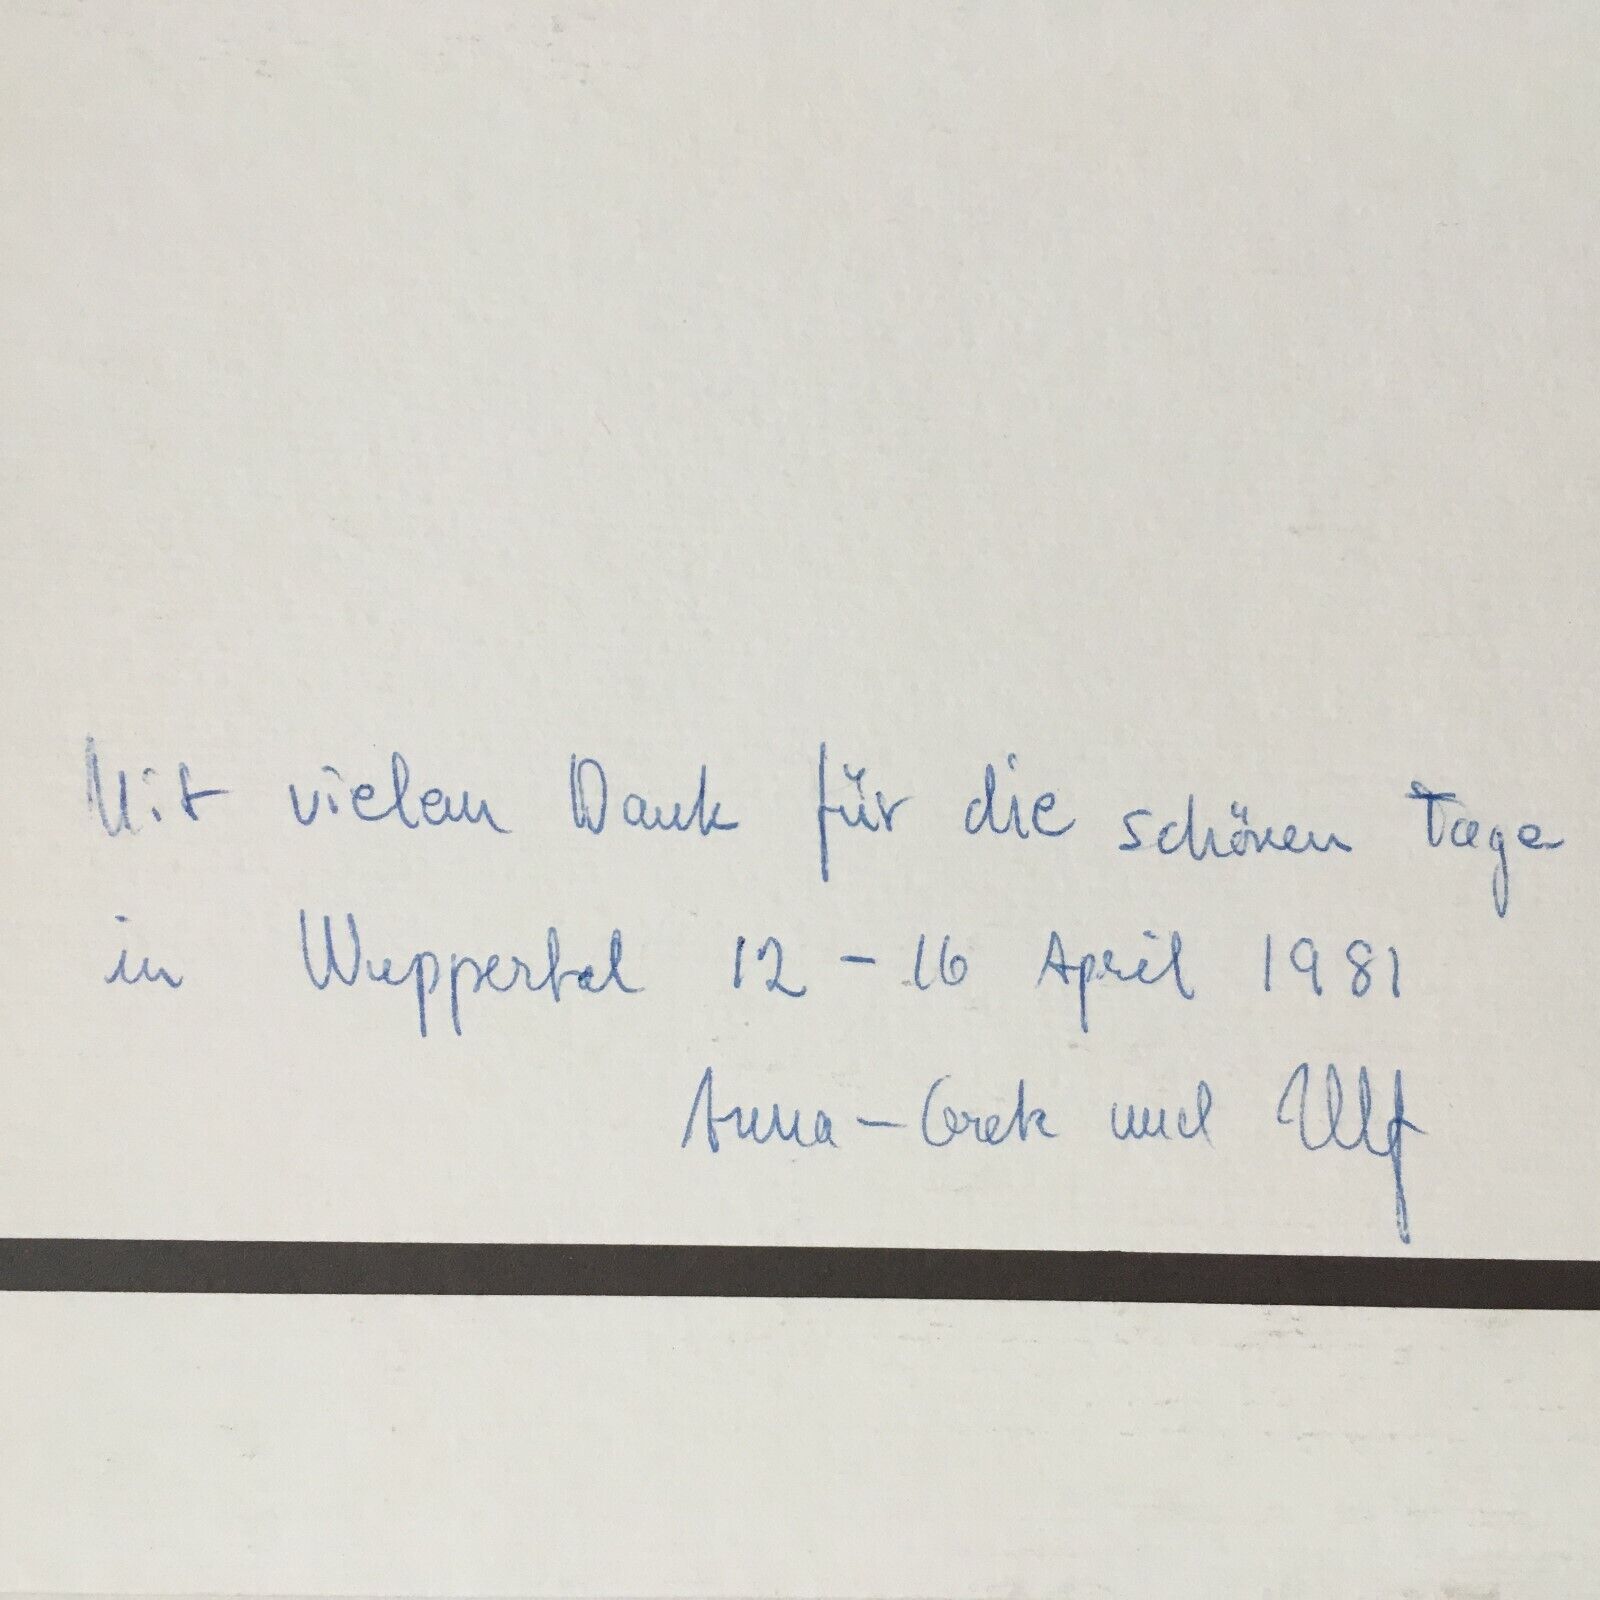 Mit vielen Dank für die schönen Tage
in Wuppertal 12 - 16 April 1981
Anna - Gret und Ulf